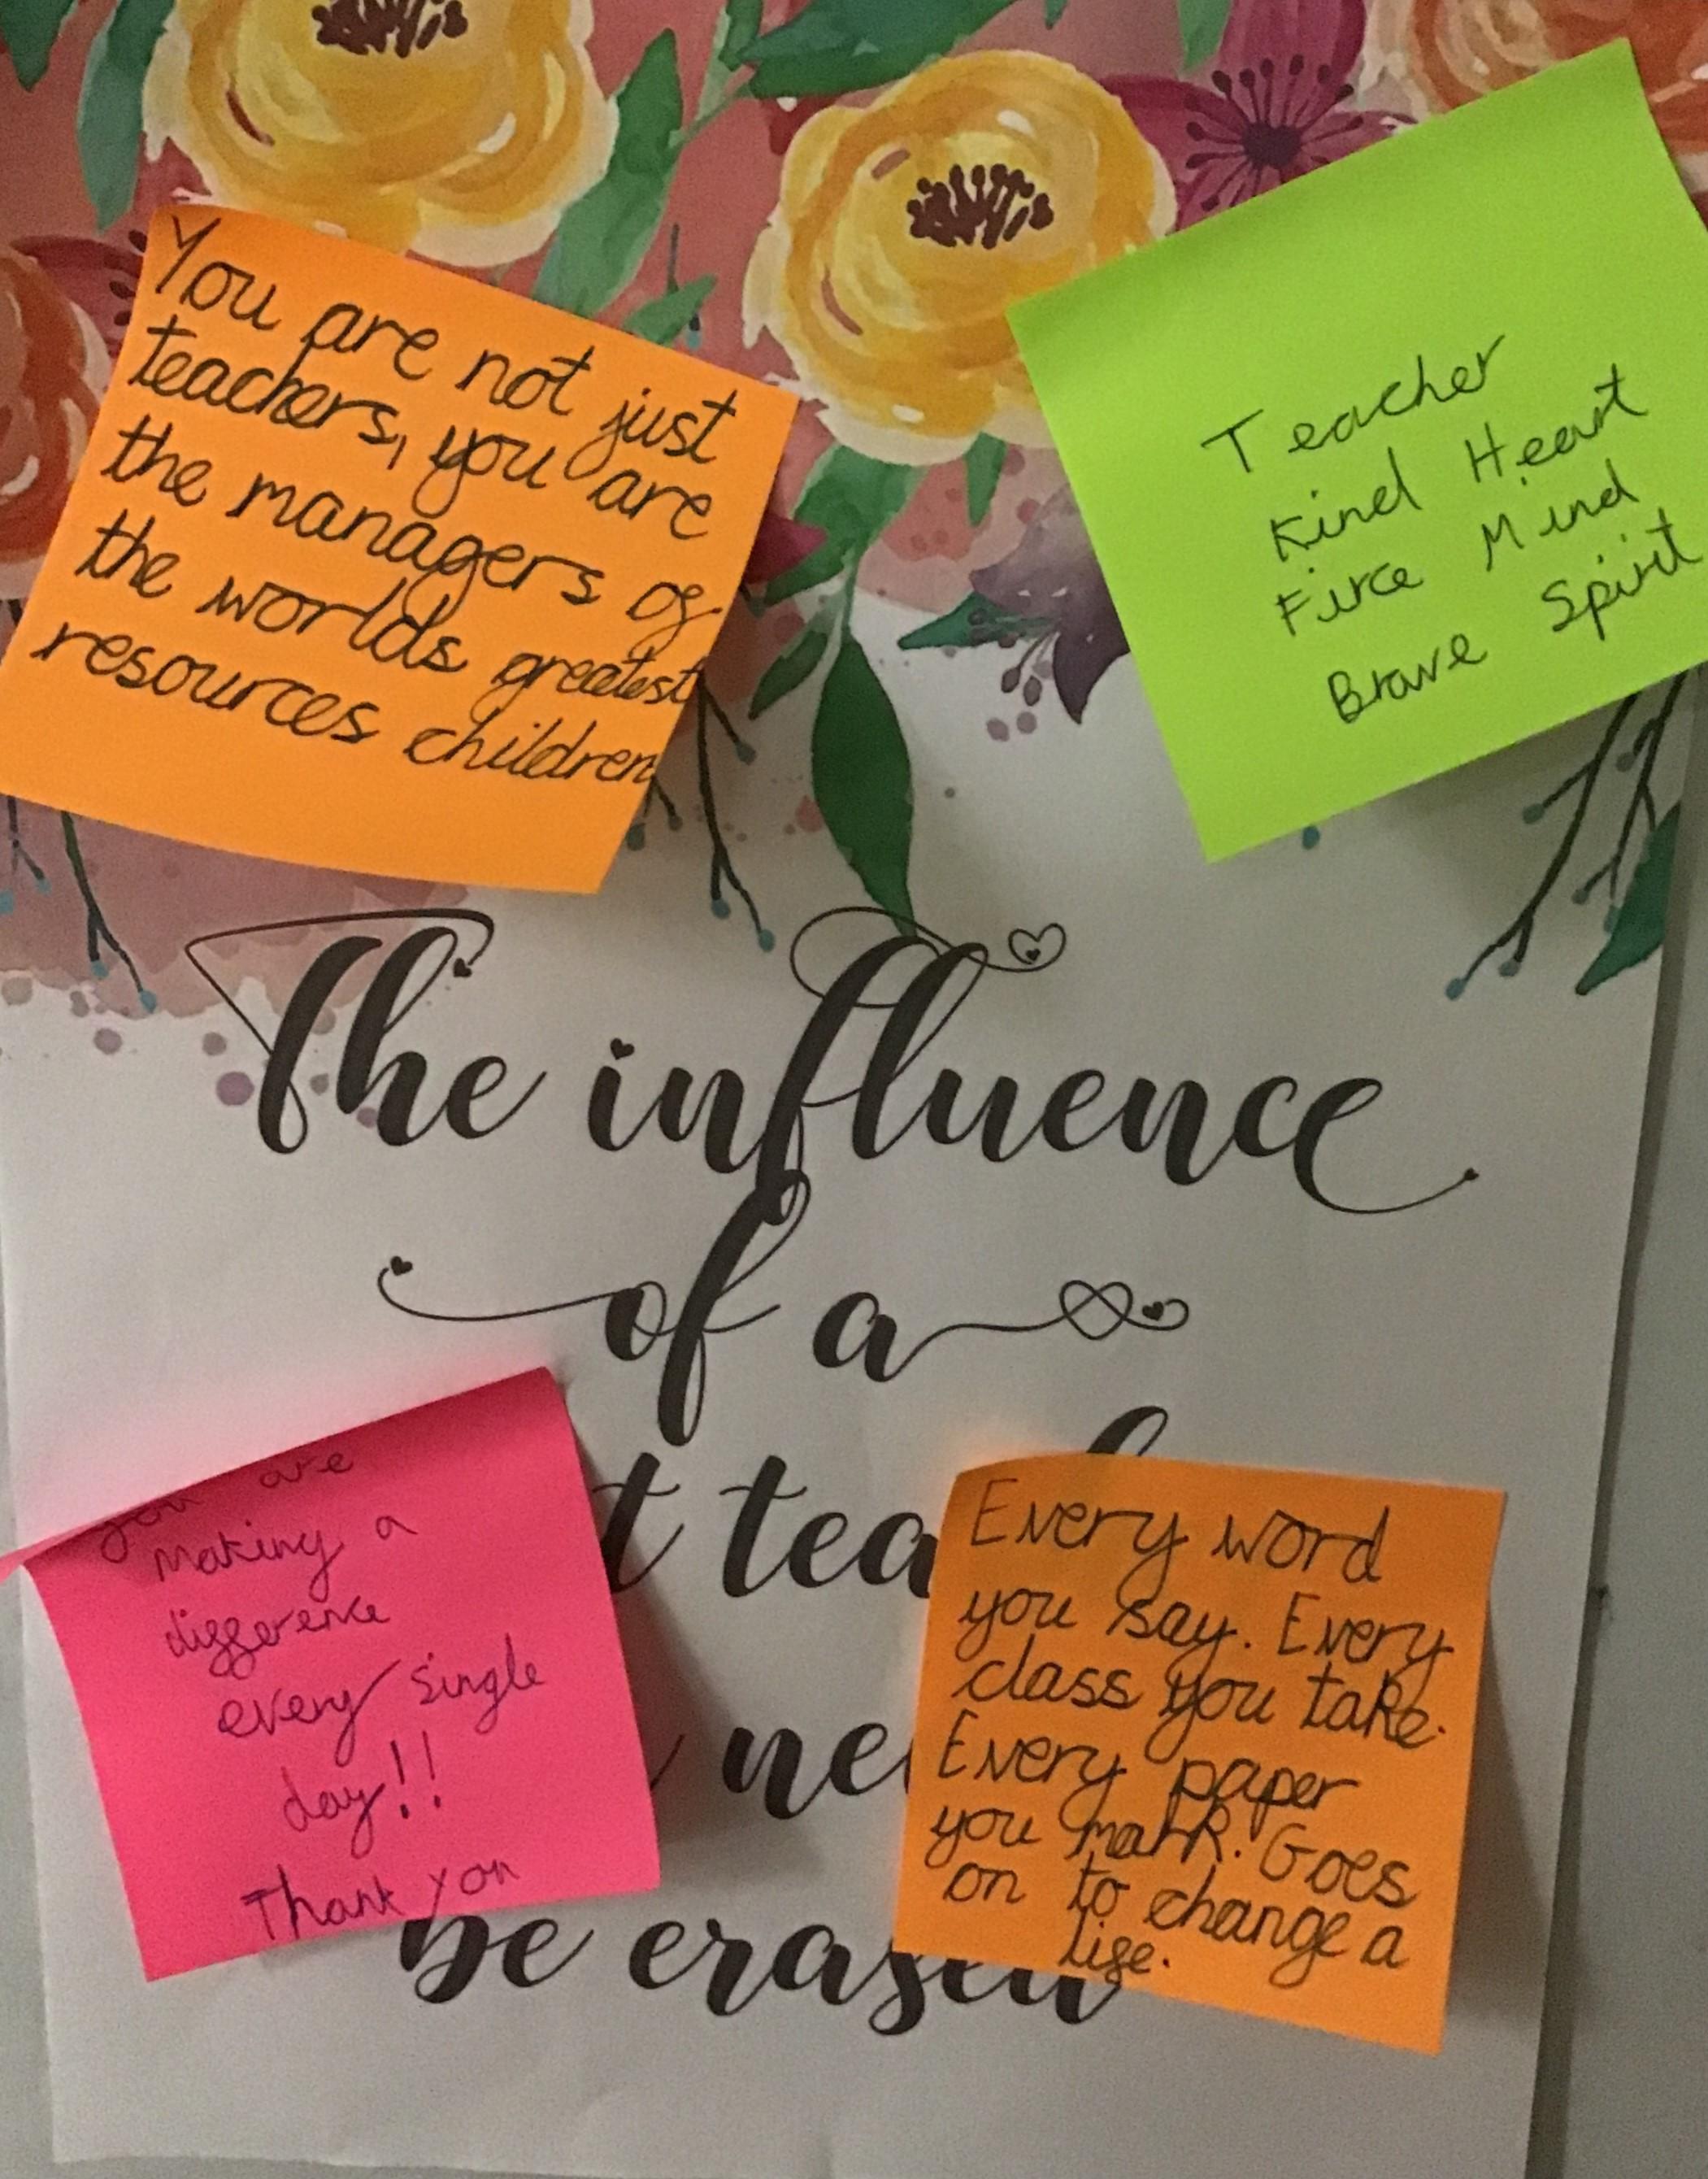 You are not just
teachers, you are
the managers of
the worlds greatest
resources children
Teacher
Kind Heart
Firce Mind
Brave Spirit
The influence
of a
t tea
ne
be erased
you are
making a
difference
every single
day!!
Thank you
Every word
you say. Every
class you take.
Every paper
you mark. Goes
on to change a
life.